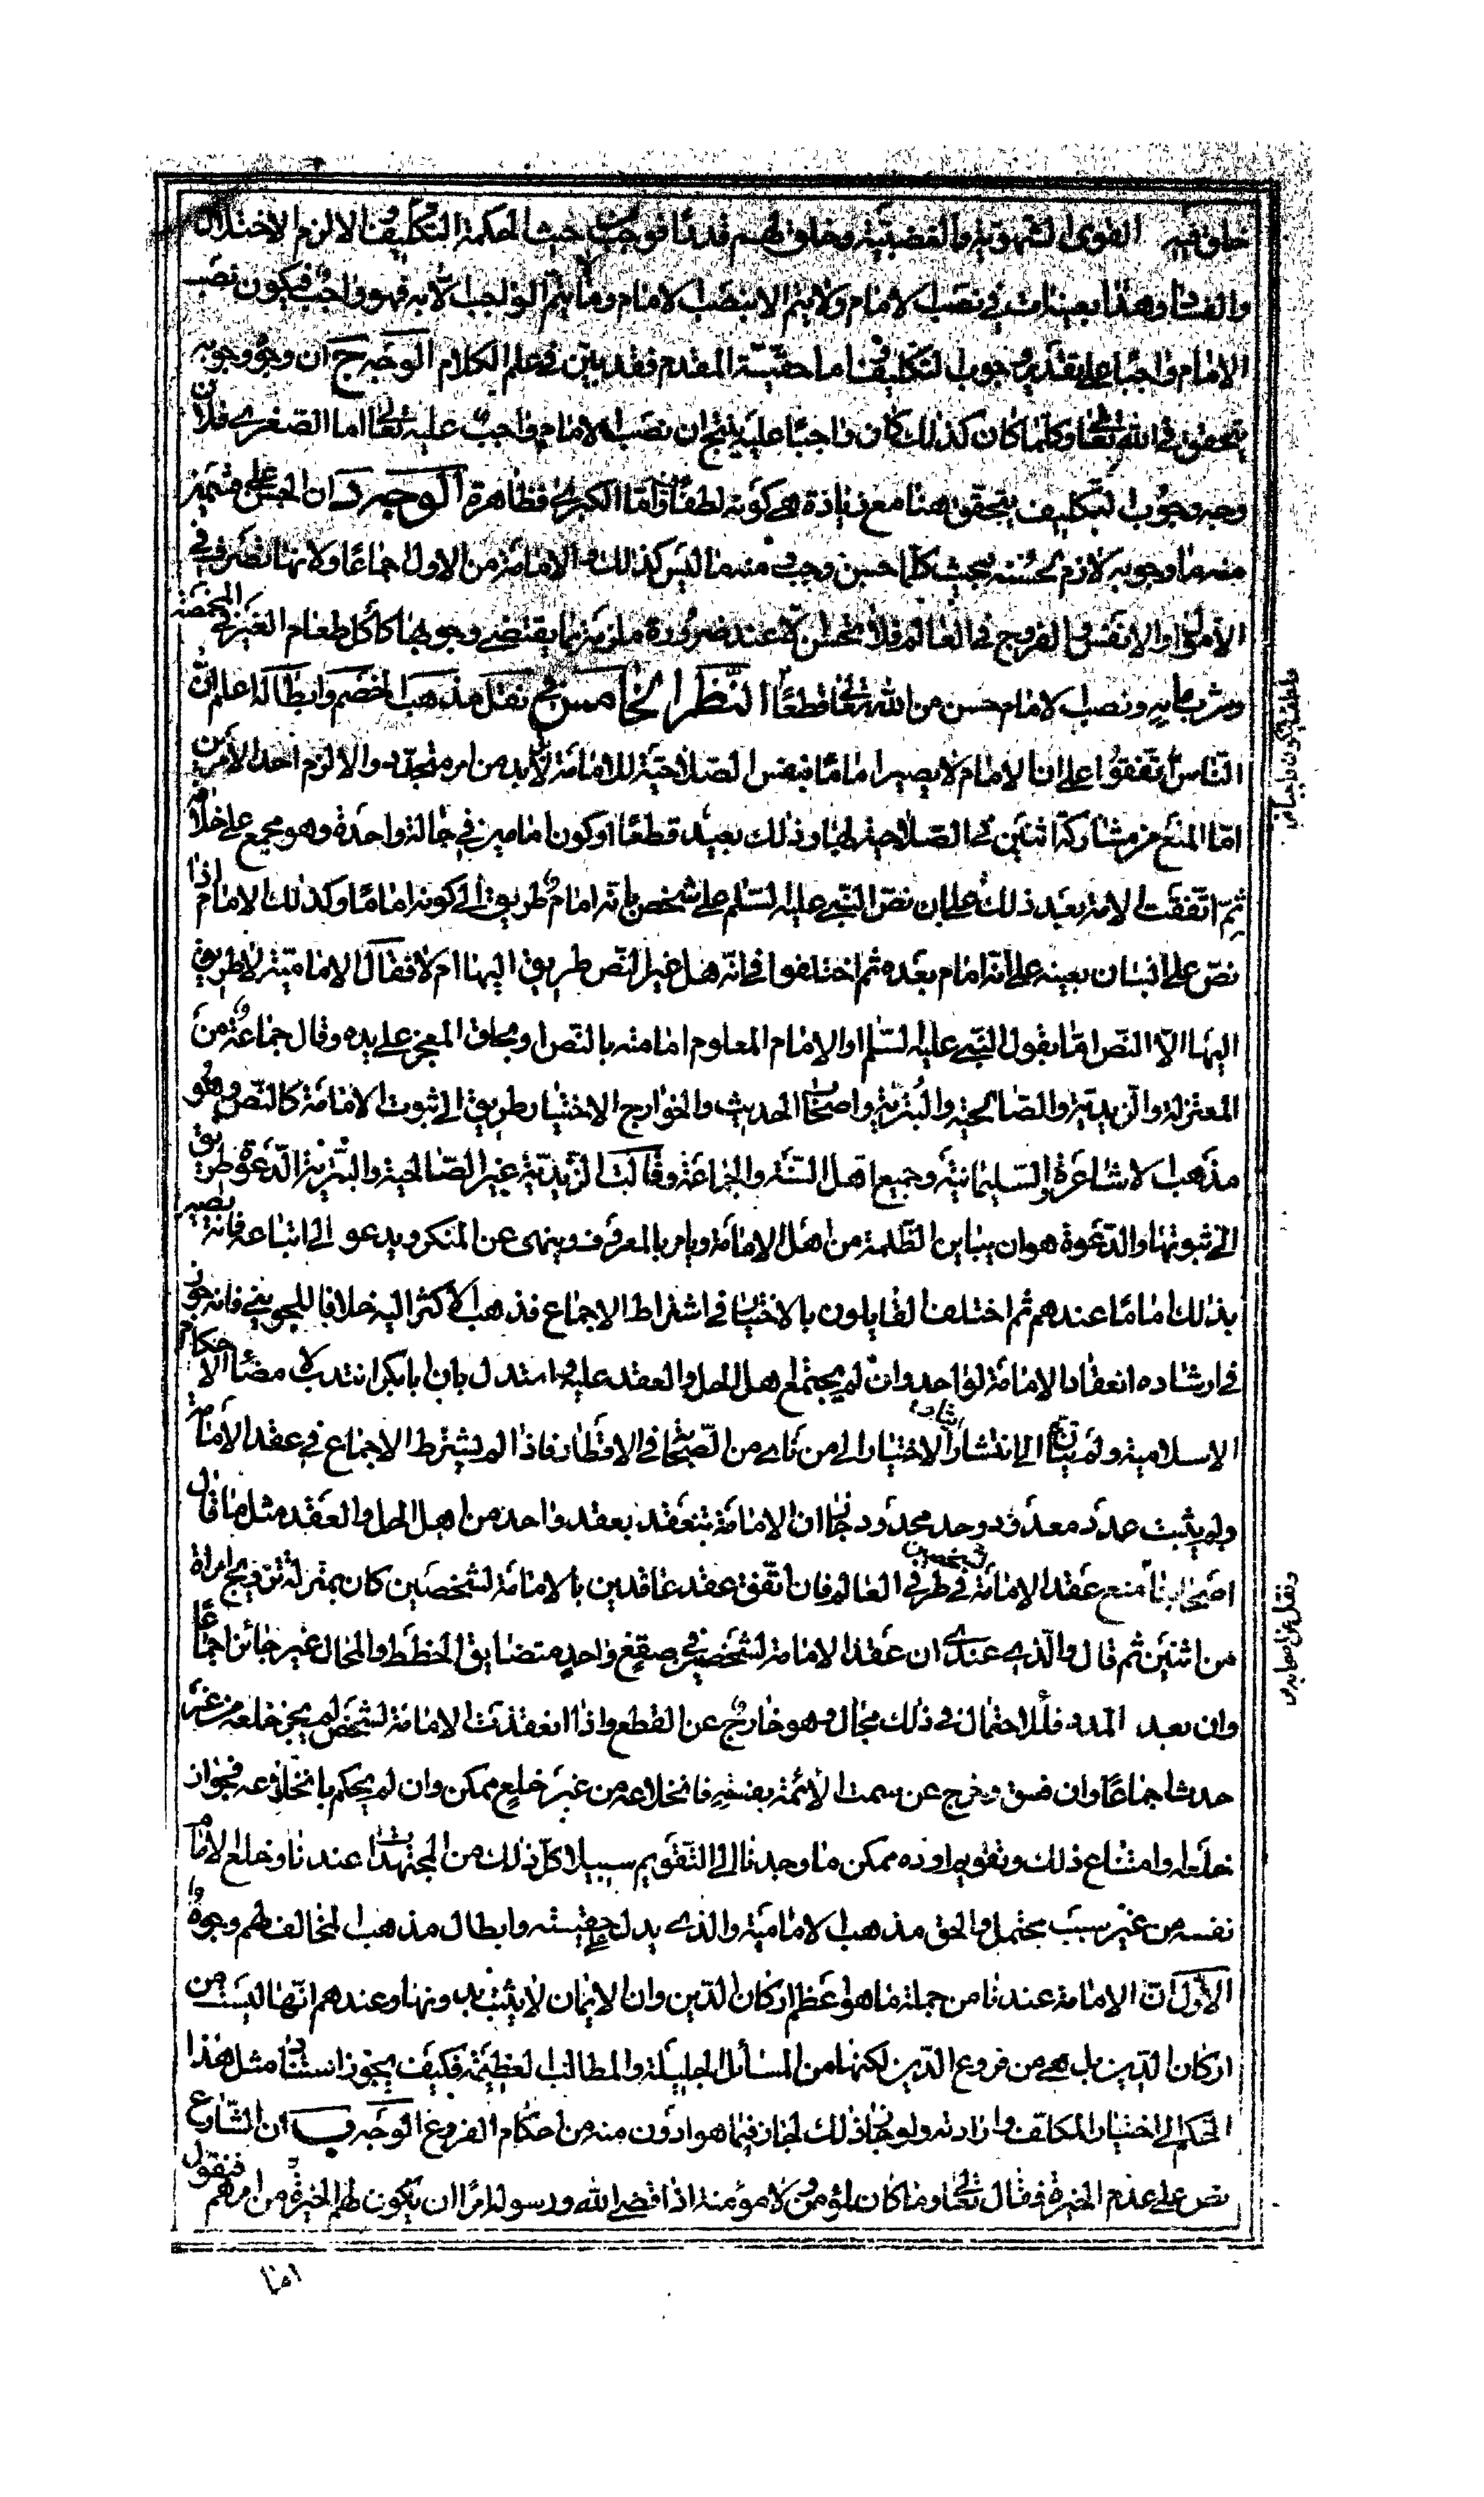 خلق فيه القوى الشهوية والغضبية وخلق لهم قدرا فوجب من حيث الحكمة التكليف والا لزم الاختلال
والفساد وهذا بعينه ات في نصب الامام ولا يتم الا بنصب الامام وما يتم الواجب الا به فهو واجب فيكون نصب
الامام واجبا على تقدير وجوب التكليف اما حقية المقدم فقد بين في علم الكلام الوجه ج ان وجه وجوبه
يتحقق في الله تعالى وكلما كان كذلك كان واجبا عليه ينتج ان نصب الامام واجب عليه تعالى اما الصغرى فلان
وجه وجوب التكليف يتحقق هنا مع زيادة هي كونه لطفا فيه واما الكبرى فظاهرة الوجه د ان الحسن على قسمين
منهما وجوبه لازم لحسنه بحيث كلما حسن وجب ومنهما ليس كذلك والامامة من الاول اجماعا ولانها تصرف في
الاموال والانفس والفروج في العالم فلا تحسن الا عند ضرورة ملزمة بما يقتضي وجوبها كأكل طعام الغير في المخمصة
وشرب مايه ونصب الامام حسن من الله تعالى قطعا النظر الخامس في نقل مذهب الخصم وابطاله اعلم ان
الناس اتفقوا على ان الامام لا يصير اماما بنفس الصلاحية للامامة لا بد من امر متجدد والا لزم احد الامرين
اما المنع من مشاركة اثنين في الصلاحية لها وذلك بعيد قطعا او كون امامين في حالة واحدة وهو مجمع على خلافه
ثم اتفقت الامة بعد ذلك على ان نص النبي عليه السلم على شخص بانه امام طريق الى كونه اماما وكذلك الامام اذا
نص على انسان بعينه على انه امام بعده ثم اختلفوا في انه هل غير النص طريق اليها ام لا فقال الامامية لا طريق
اليها الا النص اما بقول النبي عليه السلم او الامام المعلوم امامته بالنص او بخلق المعجز على يده وقال جماعة من
المعتزلة والزيدية والصالحية والبترية واصحاب الحديث والخوارج الاختيار طريق الى ثبوت الامامة كالنص وهو
مذهب الاشاعرة والسليمانية وجميع اهل السنة والجماعة وقالت الزيدية غير الصالحية والبترية الدعوة طريق
الى ثبوتها والدعوة هو ان يباين الظلمة من اهل الامامة ويامر بالمعروف وينهى عن المنكر ويدعو الى اتباعه فانه يصير
بذلك اماما عندهم ثم اختلف القايلون بالاختيار في اشتراط الاجماع فذهب الاكثر اليه خلافا للجويني فانه جوز
في ارشاده انعقاد الامامة لواحد وان لم يجتمع اهل الحل والعقد عليه واستدل بان ابابكر انتدب لامضاء الاحكام
الاسلامية ولم يتأن الى انتشار الاختيار الى من نأى من الصحابة في الاقطار فاذا لم يشترط الاجماع في عقد الامامة
ولم يثبت عدد معدود وحد محدود جاز ان الامامة تنعقد بعقد واحد من اهل الحل والعقد مثل ما قال
اصحابنا منع عقد الامامة لشخصين في طرفي العالم فان اتفق عقد عاقدين بالامامة لشخصين كان بمنزلة تزويج امراة
من اثنين ثم قال والذي عندي ان عقد الامامة لشخصين في صقع واحد متضايق الخطط والمحال غير جائز اجماعا
وان بعد المدى فللاحتمال في ذلك مجال وهو خارج عن القطع واذا انعقدت الامامة لشخص لم يجز خلعه من غير
حدث اجماعا وان فسق وخرج عن سمت الائمة بفسقه فانخلاعه من غير خلع ممكن وان لم يحكم بانخلاعه فجواز
خلعه وامتناع ذلك وتقويم اوده ممكن ما وجدنا الى التقويم سبيلا كل ذلك من المجتهدات عندنا وخلع الامام
نفسه من غير سبب محتمل والحق مذهب الامامية والذي يدل على حقيته وابطال مذهب المخالف لهم وجوه
الاول ان الامامة عندنا من جملة ما هو اعظم اركان الدين وان الايمان لا يثبت بدونها وعندهم انها ليست من
اركان الدين بل هي من فروع الدين لكنها من المسائل الجليلة والمطالب العظيمة فكيف يجوز استناد مثل هذا
الحكم الى اختيار المكلف وارادته ولو جاز ذلك لجاز فيما هو ادون منه من احكام الفروع الوجه ب ان الشارع
نص على عدم الخيرة فقال تعالى وما كان لمؤمن ولا مؤمنة اذا قضى الله ورسوله امرا ان يكون لهم الخيرة من امرهم فنقول
اما